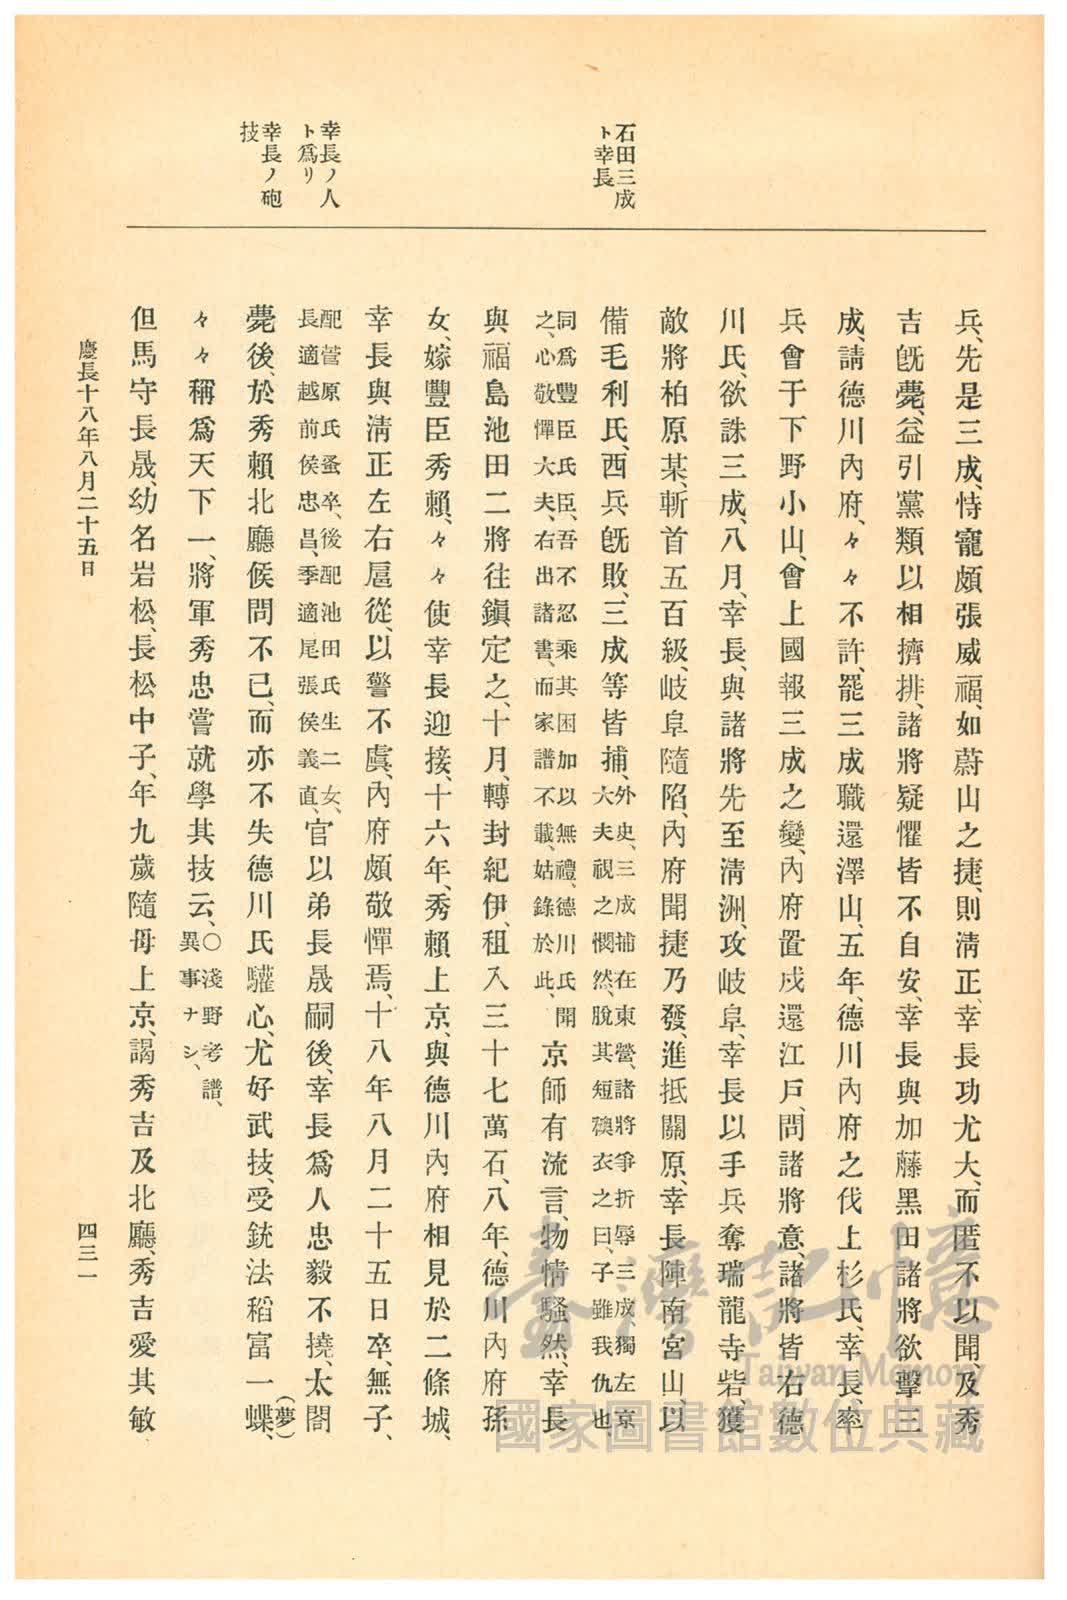 石田三成
ト幸長
幸長ノ人
ト爲リ
幸長ノ砲
技
兵、先是三成、恃寵頗張威福、如蔚山之捷、則淸正、幸長功尤大、而匿不以聞、及秀
吉旣薨、益引黨類以相擠排、諸將疑懼皆不自安、幸長與加藤黑田諸將欲擊三
成、請德川內府、々々不許、罷三成職還澤山、五年、德川內府之伐上杉氏、幸長、率
兵會于下野小山、會上國報三成之變、內府置戍還江戶、問諸將意、諸將皆右德
川氏、欲誅三成、八月、幸長、與諸將先至淸洲、攻岐阜、幸長以手兵奪瑞龍寺砦、獲
敵將柏原某、斬首五百級、岐阜隨陷、內府聞捷乃發、進抵關原、幸長陣南宮山、以
備毛利氏、西兵旣敗、三成等皆捕、
外史、三成捕在東營、諸將爭折辱三成、獨左京
大夫視之憫然、脫其短襖衣之曰、子雖我仇也、
同爲豐臣氏臣、吾不忍乘其困加以無禮、德川氏聞
之、心敬憚大夫、右出諸書、而家譜不載、姑錄於此、
京師有流言、物情騷然、幸長
與福島池田二將往鎭定之、十月、轉封紀伊、租入三十七萬石、八年、德川內府孫
女、嫁豐臣秀賴、々々使幸長迎接、十六年、秀賴上京、與德川內府相見於二條城、
幸長與淸正左右扈從、以警不虞、內府頗敬憚焉、十八年八月二十五日卒、無子、
配菅原氏蚤卒、後配池田氏生二女、
長適越前侯忠昌、季適尾張侯義直、
官以弟長晟嗣後、幸長爲人忠毅不撓、太閤
薨後、於秀賴北廳候問不已、而亦不失德川氏驩心、尤好武技、受銃法稻富一蝶、
(夢)
々々稱爲天下一、將軍秀忠嘗就學其技云、
〇淺野考譜、
異事ナシ、
但馬守長晟、幼名岩松、長松中子、年九歲隨母上京、謁秀吉及北廳、秀吉愛其敏
慶長十八年八月二十五日
四三一
臺灣記憶
Taiwan Memory
國家圖書館數位典藏